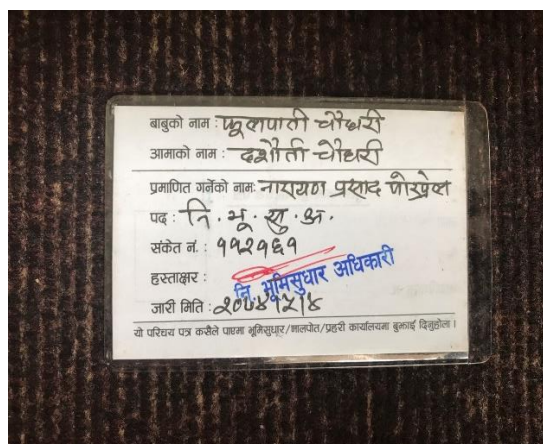 बाबुको नाम : फूलपाती चौधरी
आमाको नाम : दशौती चौधरी
प्रमाणित गर्नेको नाम: नारायण प्रसाद पोख्रेल
पद : नि . भू . सु . अ .
संकेत नं. : ११२१६१
हस्ताक्षर :
नि. भूमिसुधार अधिकारी
जारी मिति : २०७४।२।४
यो परिचय पत्र कसैले पाएमा भूमिसुधार/मालपोत/प्रहरी कार्यालयमा बुझाई दिनुहोला ।